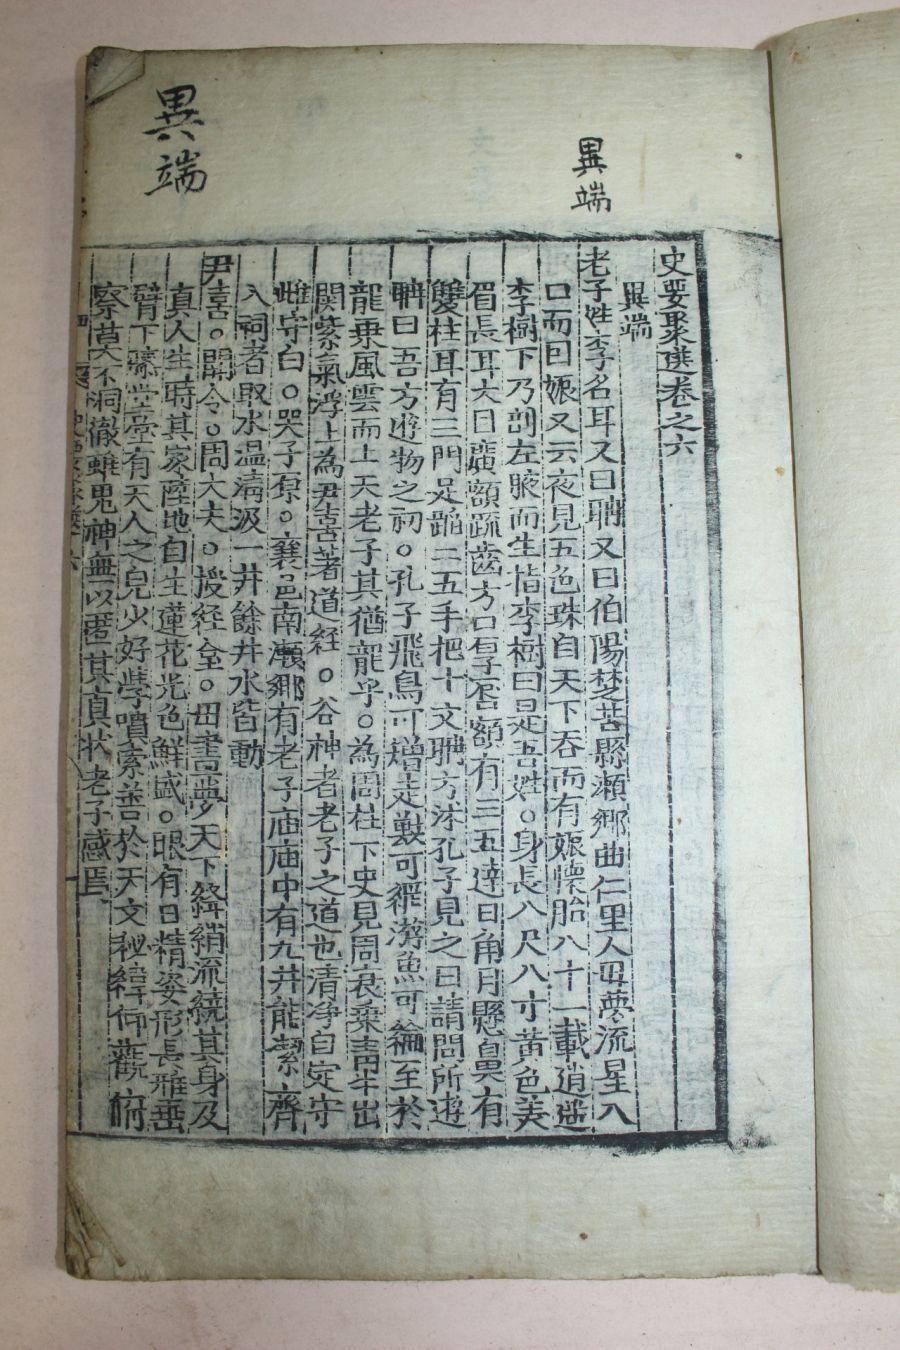 異端
史要聚選卷之六
異端
老子姓李名耳又曰聃又曰伯陽楚苦縣瀬鄉曲仁里人母夢流星入
口而囘娠又云夜見五色珠自天下吞而有娠懷胎八十一載逍遥
李樹下乃剖左腋而生指李樹曰是吾姓○身長八尺八寸黄色美
眉長耳大目廣額疏齒方口厚唇額有三五達日角月懸鼻有
雙柱耳有三門足蹈二五手把十文聃方沐孔子見之曰請問所遊
聃曰吾方遊物之初○孔子飛鳥可矰走獸可羅游魚可綸至於
龍乘風雲而上天老子其猶龍乎○為周柱下史見周衰乘青牛出
関紫氣浮上為尹喜著道経○谷神者老子之道也清净自定守
雌守白○哭子原○襄邑南瀬鄉有老子庙庙中有九井能㓗齊
入祠者取水温清汲一井餘井水皆動
尹喜○関令○周大夫○授経全○母晝夢天下絳綃流繞其身及
真人生時其家陸地自生蓮花光色鮮盛○眼有日精姿形長雅垂
臂下膝堂堂有天人之皃少好學墳索善於天文秘緯仰觀俯
察莫不洞徹雖鬼神無以匿其真状老子感焉
異端